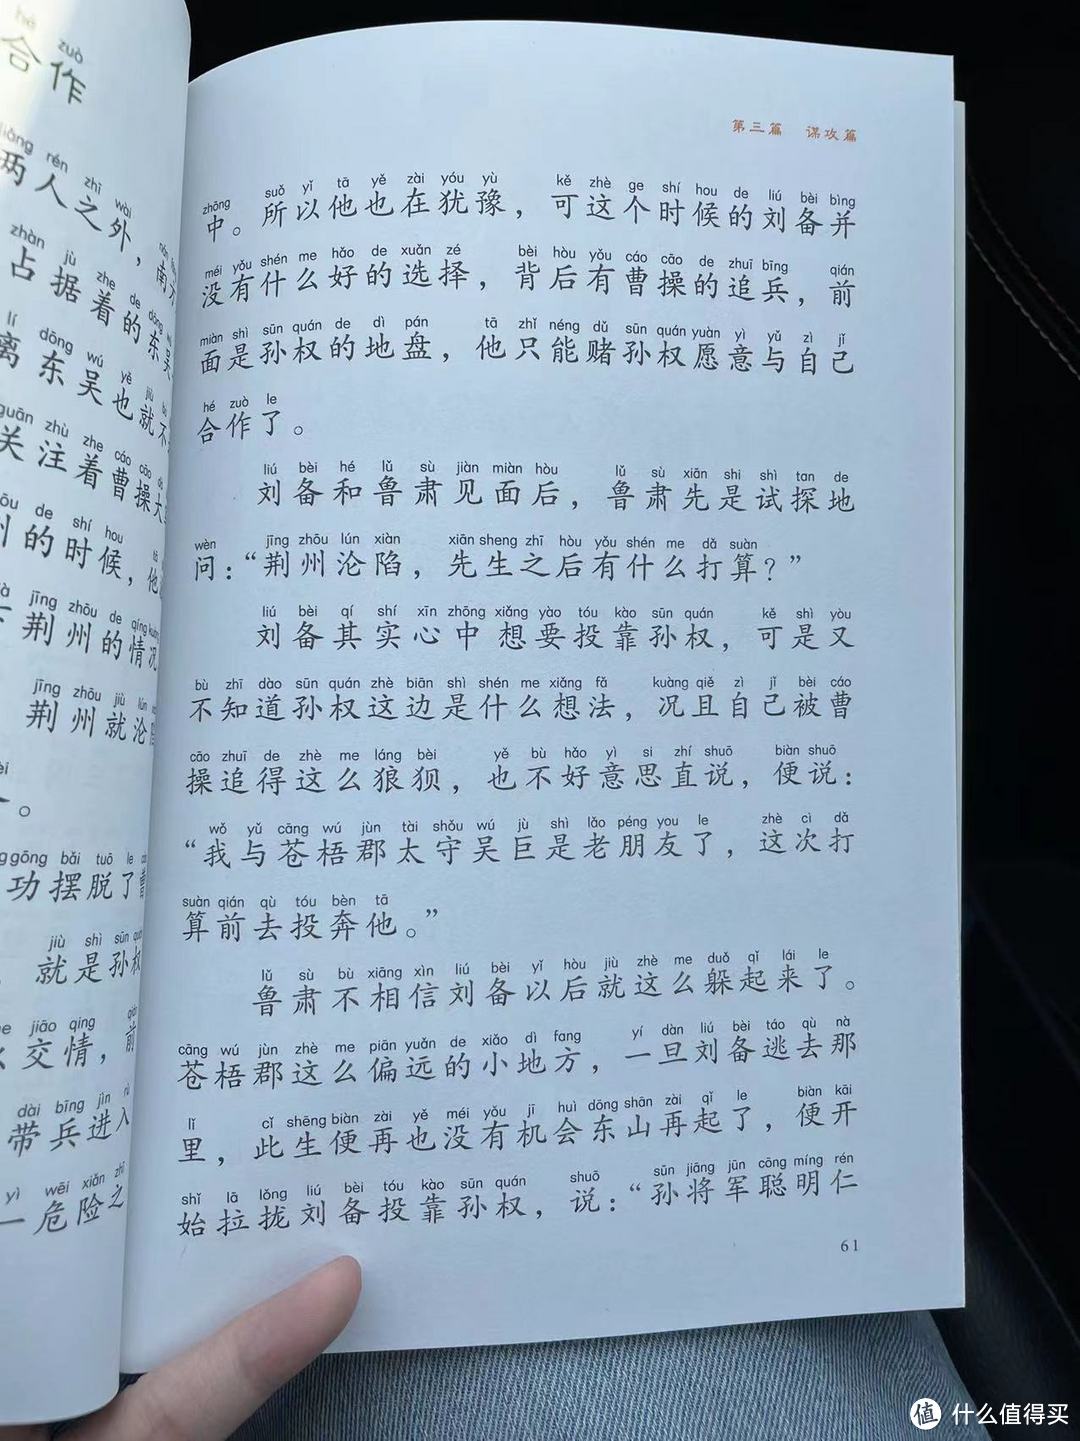 hé zuò
合作
rén zhī wài
两人之外，南
zhàn jù zhe de
占据着的东吴
lí dōng wú yě jiù
离东吴也就不
guān zhù zhe cáo cāo
关注着曹操大
de shí hou
的时候，他
jīng zhōu de qíng kuàng
荆州的情况
jīng zhōu jiù lún
荆州就沦陷
。
gōng bǎi tuō le
功摆脱了曹
jiù shì sūn quán
就是孙权
jiāo qing qián
交情，前
dài bīng jìn rù
带兵进入
yì wēi xiǎn zhī
一危险之
第三篇 谋攻篇
zhōng suǒ yǐ tā yě zài yóu yù kě zhè ge shí hou de liú bèi bìng
中。所以他也在犹豫，可这个时候的刘备并
méi yǒu shén me hǎo de xuǎn zé bèi hòu yǒu cáo cāo de zhuī bīng qián
没有什么好的选择，背后有曹操的追兵，前
miàn shì sūn quán de dì pán tā zhǐ néng dǔ sūn quán yuàn yì yǔ zì jǐ
面是孙权的地盘，他只能赌孙权愿意与自己
hé zuò le
合作了。
liú bèi hé lǔ sù jiàn miàn hòu lǔ sù xiān shi shì tan de
刘备和鲁肃见面后，鲁肃先是试探地
wèn jīng zhōu lún xiàn xiān sheng zhī hòu yǒu shén me dǎ suàn
问：“荆州沦陷，先生之后有什么打算？”
liú bèi qí shí xīn zhōng xiǎng yào tóu kào sūn quán kě shì yòu
刘备其实心中想要投靠孙权，可是又
bù zhī dào sūn quán zhè biān shì shén me xiǎng fǎ kuàng qiě zì jǐ bèi cáo
不知道孙权这边是什么想法，况且自己被曹
cāo zhuī de zhè me láng bèi yě bù hǎo yì si zhí shuō biàn shuō
操追得这么狼狈，也不好意思直说，便说：
wǒ yǔ cāng wú jùn tài shǒu wú jù shì lǎo péng you le zhè cì dǎ
“我与苍梧郡太守吴巨是老朋友了，这次打
suàn qián qù tóu bèn tā
算前去投奔他。”
lǔ sù bù xiāng xìn liú bèi yǐ hòu jiù zhè me duǒ qǐ lái le
鲁肃不相信刘备以后就这么躲起来了。
cāng wú jùn zhè me piān yuǎn de xiǎo dì fang yí dàn liú bèi táo qù nà
苍梧郡这么偏远的小地方，一旦刘备逃去那
lǐ cǐ shēng biàn zài yě méi yǒu jī huì dōng shān zài qǐ le biàn kāi
里，此生便再也没有机会东山再起了，便开
shǐ lā lǒng liú bèi tóu kào sūn quán shuō sūn jiāng jūn cōng míng rén
始拉拢刘备投靠孙权，说：“孙将军聪明仁
61
值 什么值得买